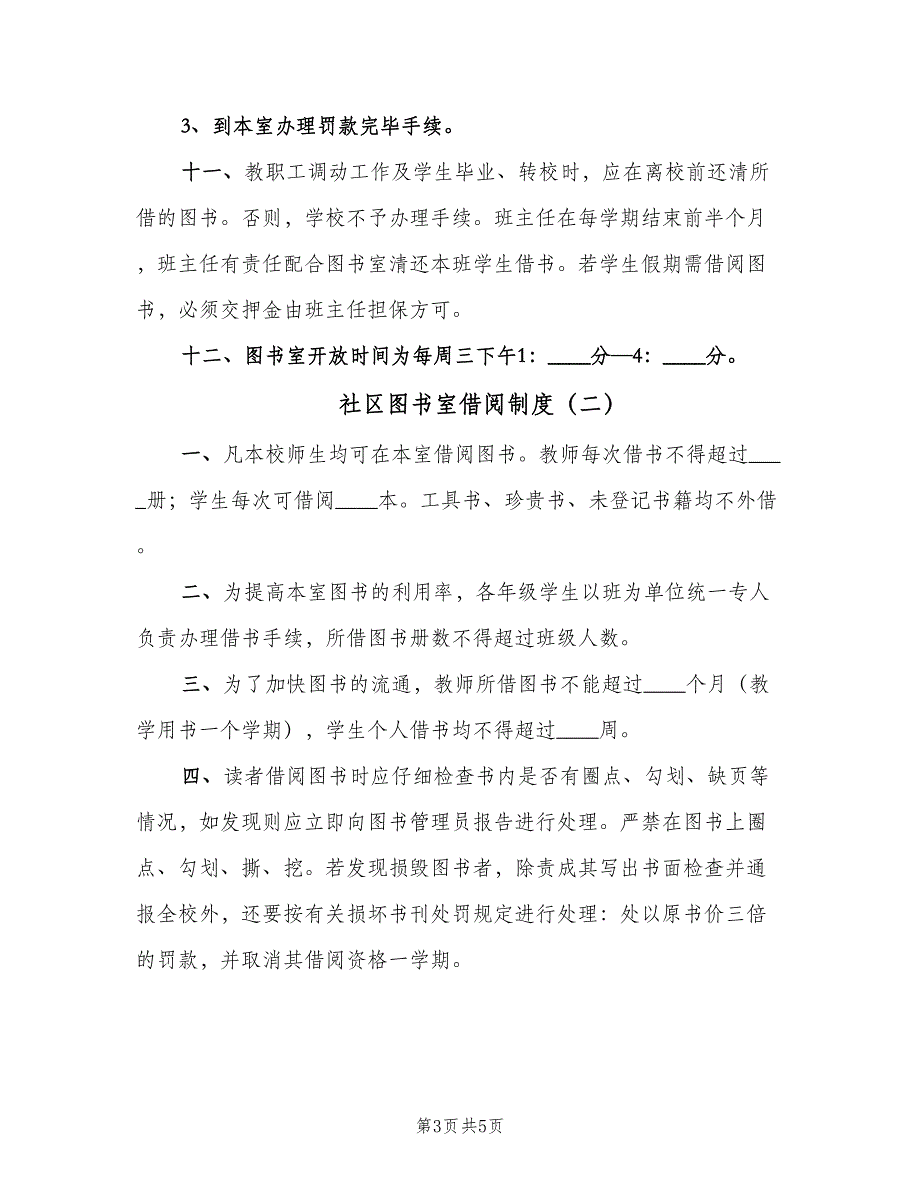 3、到本室办理罚款完毕手续。
十一、教职工调动工作及学生毕业、转校时，应在离校前还清所
借的图书。否则，学校不予办理手续。班主任在每学期结束前半个月
，班主任有责任配合图书室清还本班学生借书。若学生假期需借阅图
书，必须交押金由班主任担保方可。
十二、图书室开放时间为每周三下午1：____分—4：____分。
社区图书室借阅制度（二）
一、凡本校师生均可在本室借阅图书。教师每次借书不得超过___
_册；学生每次可借阅____本。工具书、珍贵书、未登记书籍均不外借
。
二、为提高本室图书的利用率，各年级学生以班为单位统一专人
负责办理借书手续，所借图书册数不得超过班级人数。
三、为了加快图书的流通，教师所借图书不能超过____个月（教
学用书一个学期），学生个人借书均不得超过____周。
四、读者借阅图书时应仔细检查书内是否有圈点、勾划、缺页等
情况，如发现则应立即向图书管理员报告进行处理。严禁在图书上圈
点、勾划、撕、挖。若发现损毁图书者，除责成其写出书面检查并通
报全校外，还要按有关损坏书刊处罚规定进行处理：处以原书价三倍
的罚款，并取消其借阅资格一学期。
第3页 共5页